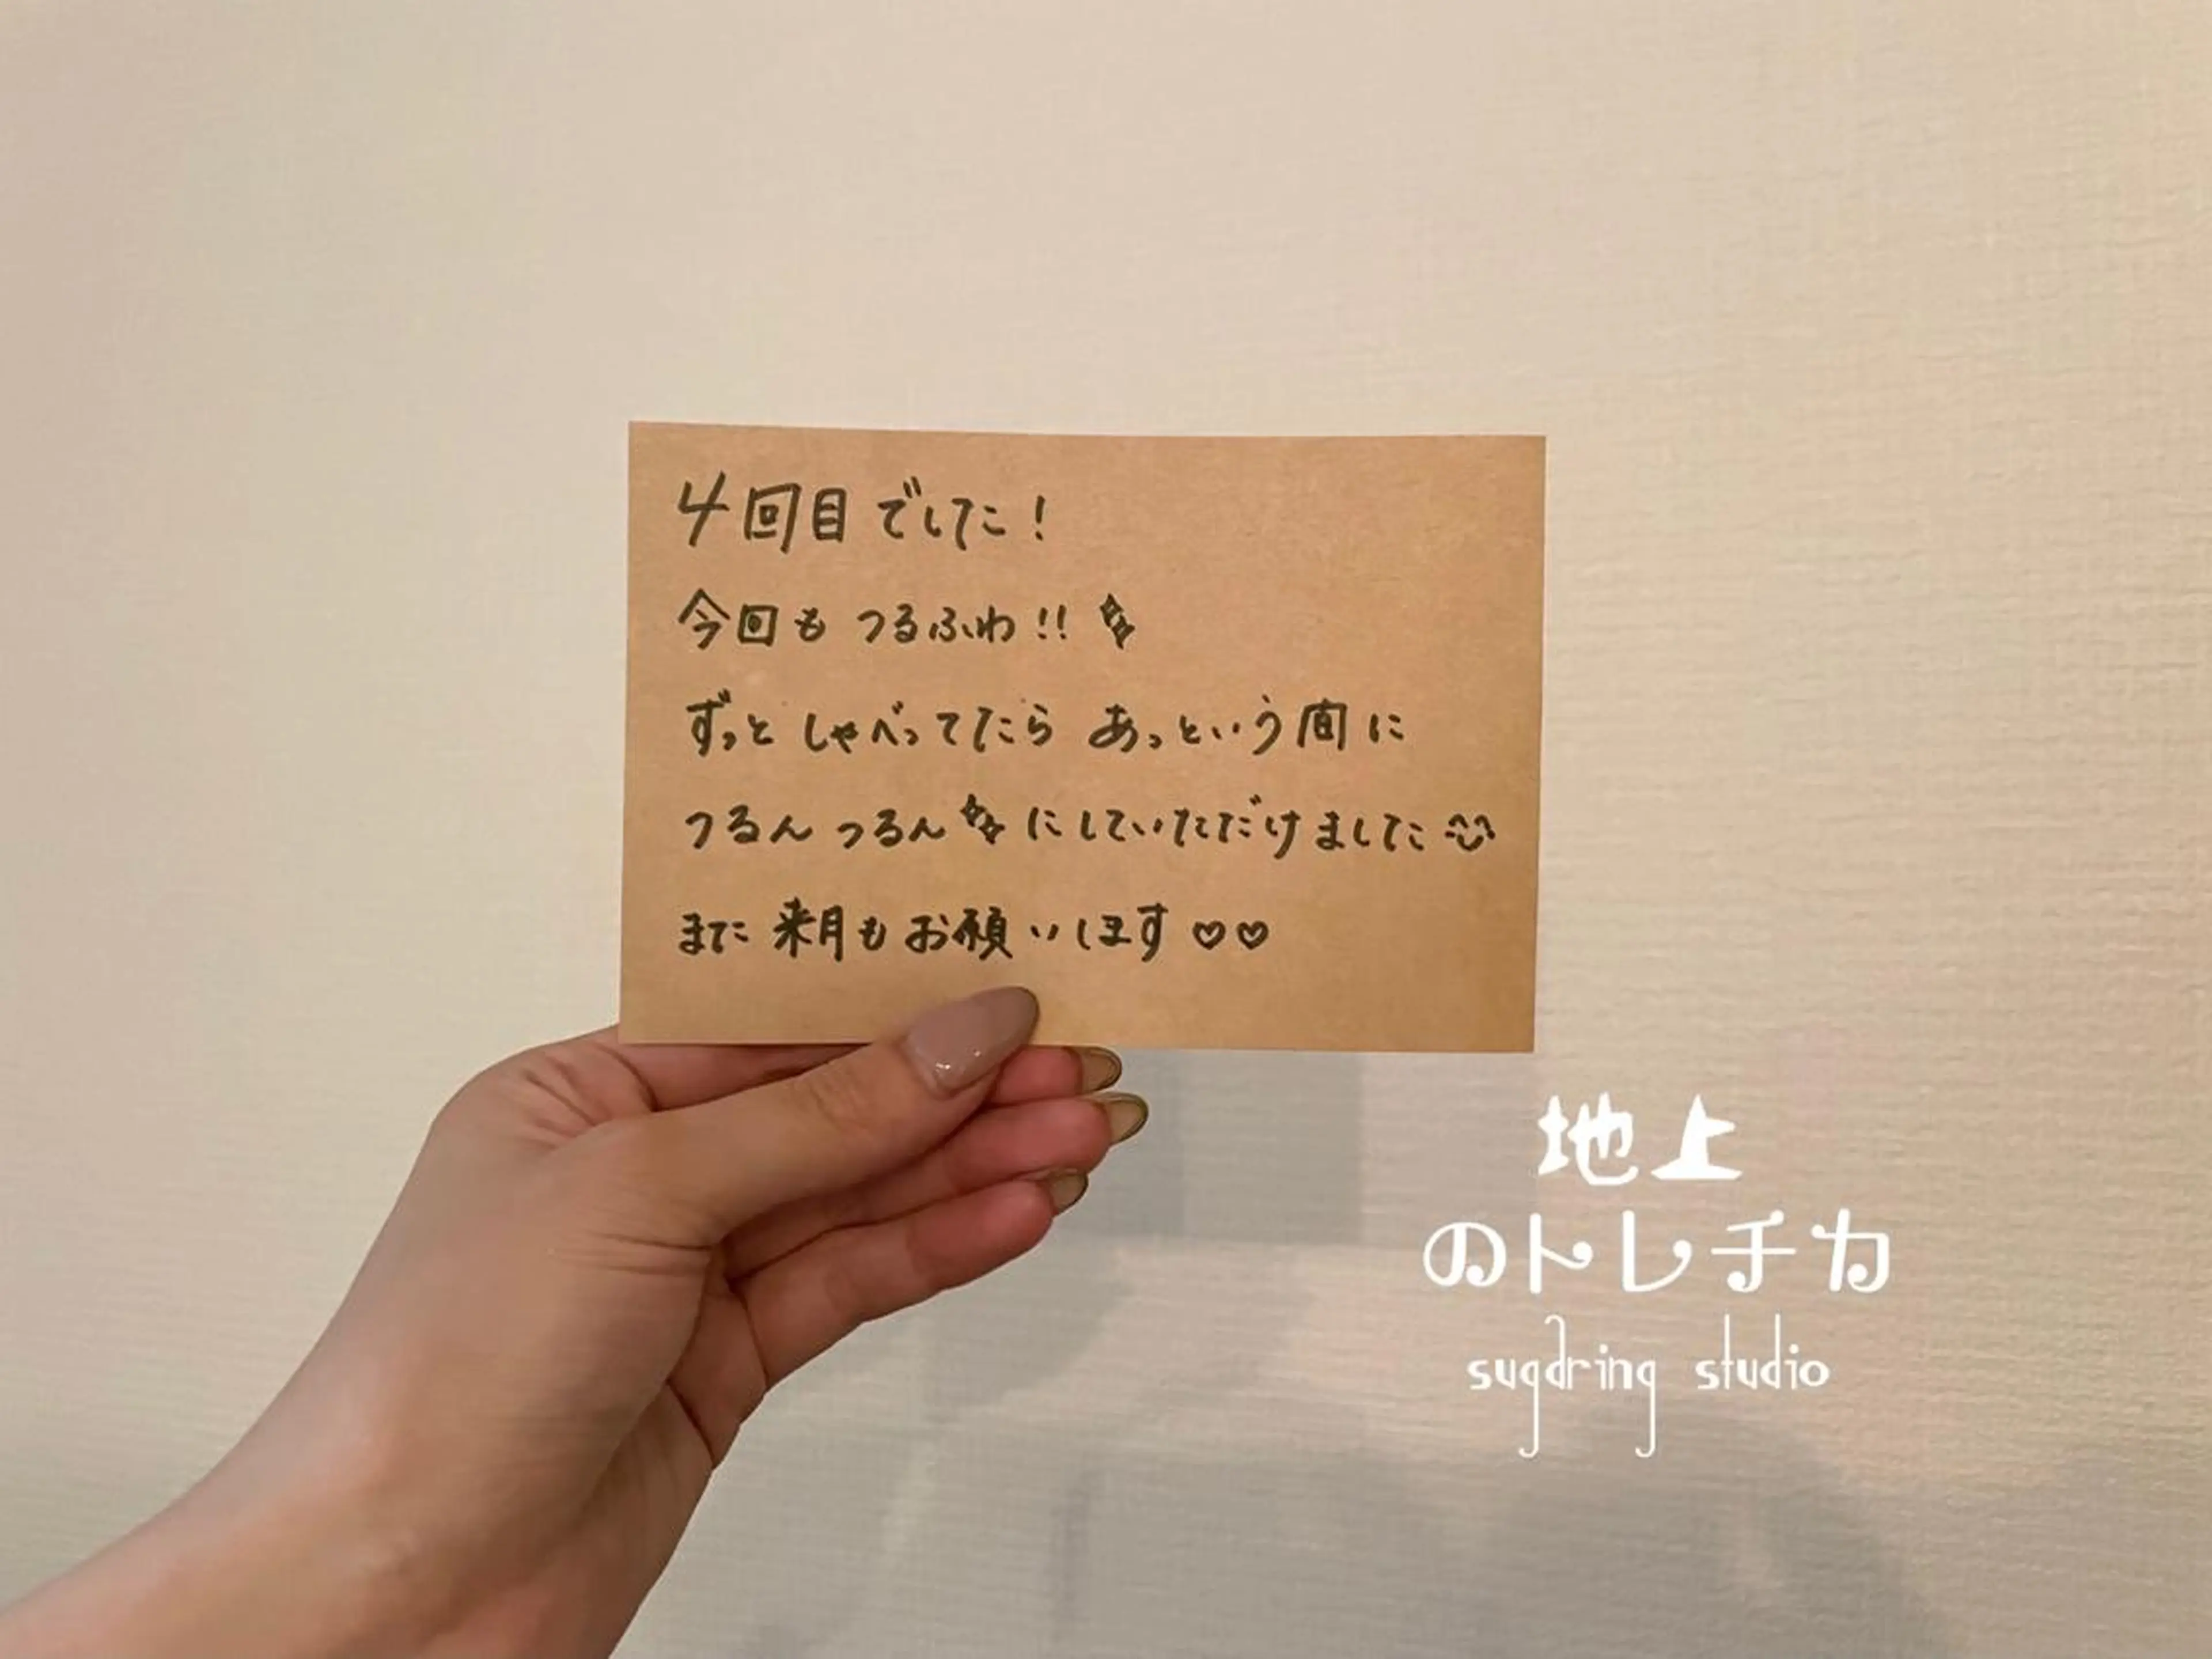 4回目でした！
今回も つるふわ!!
ずっと しゃべってたら あっという間に
つるん つるん にしていただけました
また 来月も お願いします♡♡
地上
のトレチカ
sugaring studio